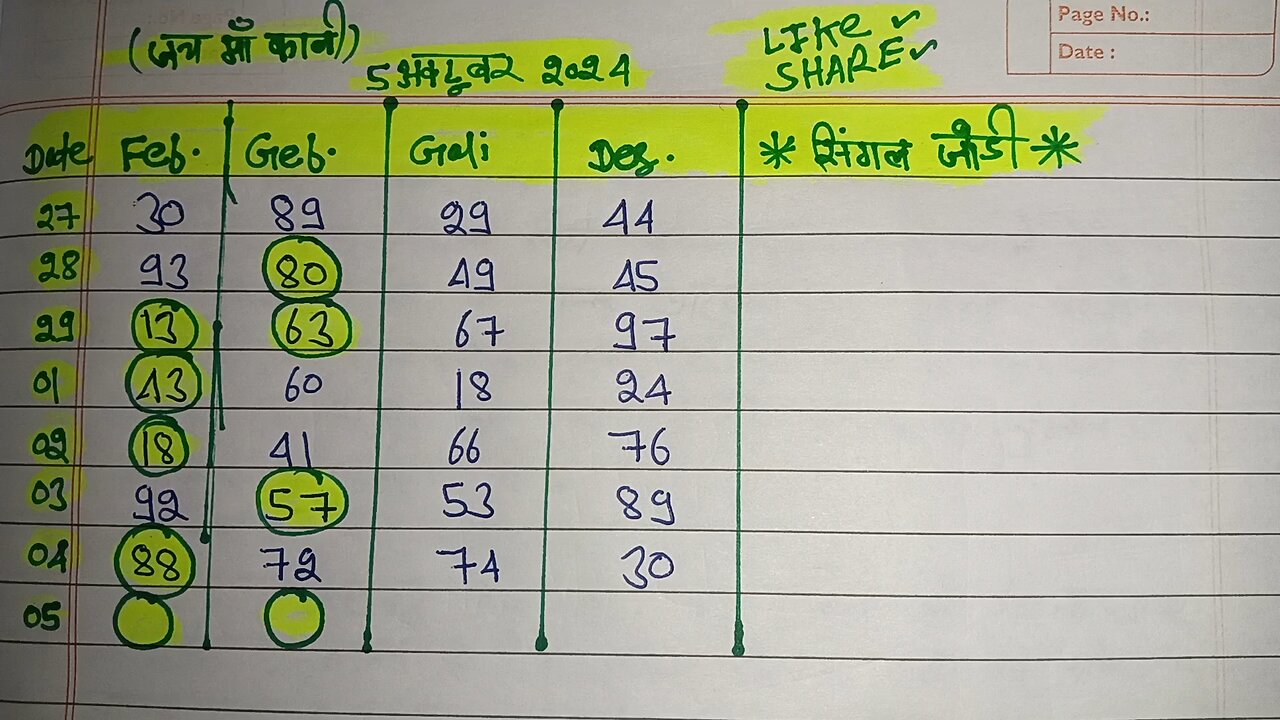 Page No.:
(जय माँ काली)
LIKE ✓
Date :
SHARE ✓
5 अक्टूबर 2024
Date Feb. Geb. Gali Des. * सिंगल जोडी *
27 30 89 29 44
28 93 80 49 45
29 13 63 67 97
01 43 60 18 24
02 18 41 66 76
03 92 57 53 89
04 88 72 74 30
05